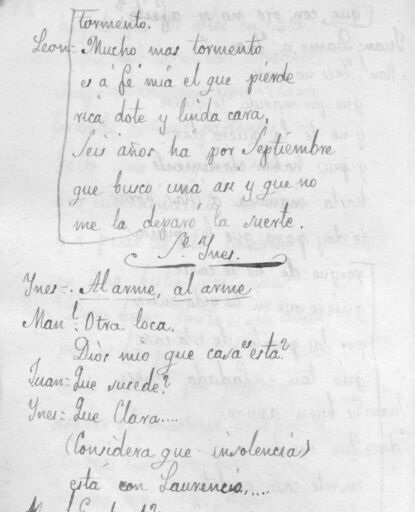 tormento.
Leon= Mucho mas tormento
es á fé mia el que pierde
rica dote y linda cara,
Seis años ha por Septiembre
que busco una asi y que no
me la deparo la suerte.
Ynes.
Ynes=. Al arme, al arme
Man!. Otra loca.
Dios mio que casa es ésta?
Juan= Que sucede?
Ynes= Que Clara....
(Considera que insolencia)
está con Laurencio,....